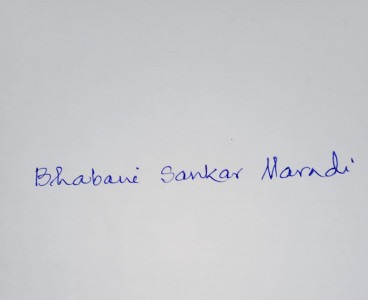 Bhabani Sankar Marndi